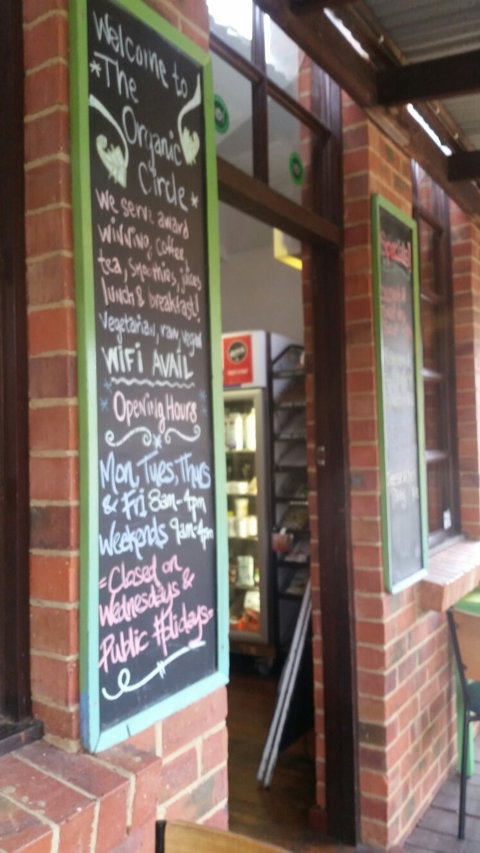 Welcome to
*The
Organic
Circle*
We serve award
winning, coffee,
tea, smoothies, juices
lunch & breakfast!
Vegetarian, raw, vegan
WiFi AVAIL
Opening Hours
Mon, Tues, Thurs
& Fri 8am-4pm
Weekends 9am-4pm
=Closed on
Wednesdays &
Public Holidays=